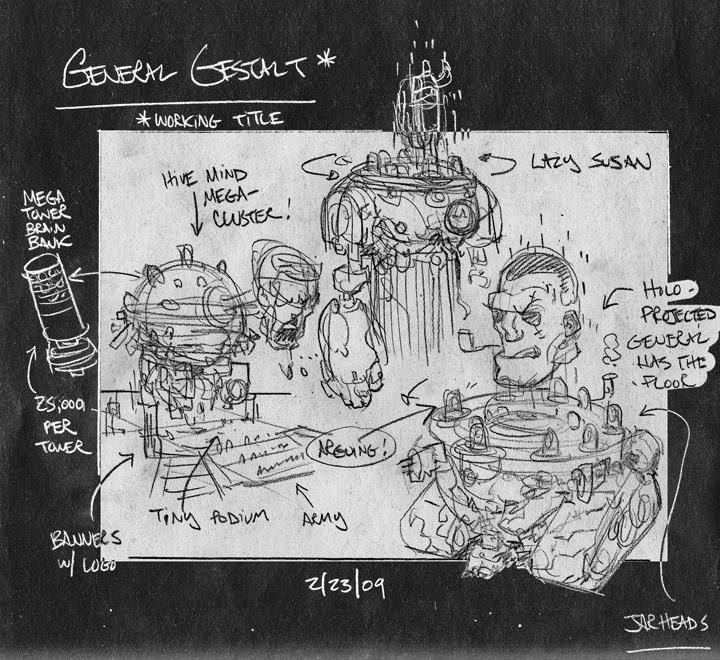 GENERAL GESTALT*
*WORKING TITLE
LAZY SUSAN
HIVE MIND
MEGA-
CLUSTER!
MEGA
TOWER
BRAIN
BANK
HOLO-
PROJECTED
GENERAL
HAS THE
FLOOR
25,000
PER
TOWER
ARGUING!
TINY PODIUM
ARMY
BANNERS
W/ LOGO
2/23/09
JARHEADS